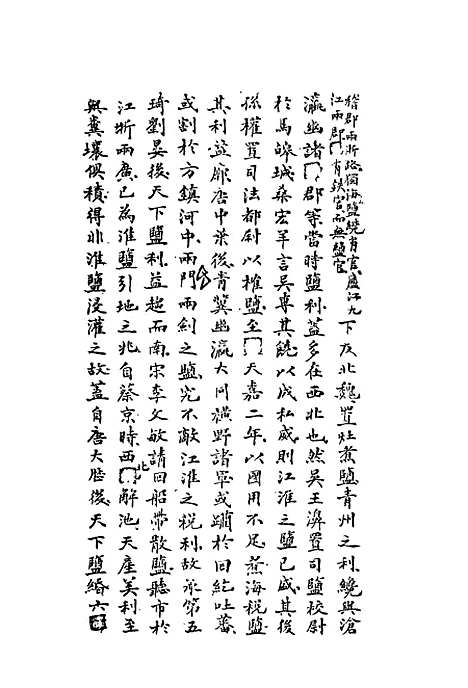 稽郡兩浙路獨海鹽饒有官廬江九
江兩郡□□有鉄官而無鹽官
下及北魏置灶煮鹽青州之利饒與滄
瀛幽諸□□郡等當時鹽利蓋多在西北也然吳王濞置司鹽校尉
於馬皞城桑宏羊言吳專其饒以成私威則江淮之鹽已盛其後
孫權置司法都尉以榷鹽至□□天嘉二年以國用不足煮海稅鹽
其利益廓唐中葉後青冀幽瀛大同橫野諸軍或躪於回紇吐蕃
或割於方鎮河中兩門兩劍之鹽究不敵江淮之稅利故永第五
琦劉吳後天下鹽利益趨而南宋李文敏請回船帶散鹽聽市於
江浙兩廣已為淮鹽引地之兆自蔡京時西北□□解池天產美利至
與糞壤俱積得非淮鹽浸灌之故蓋自唐大歷後天下鹽緡六